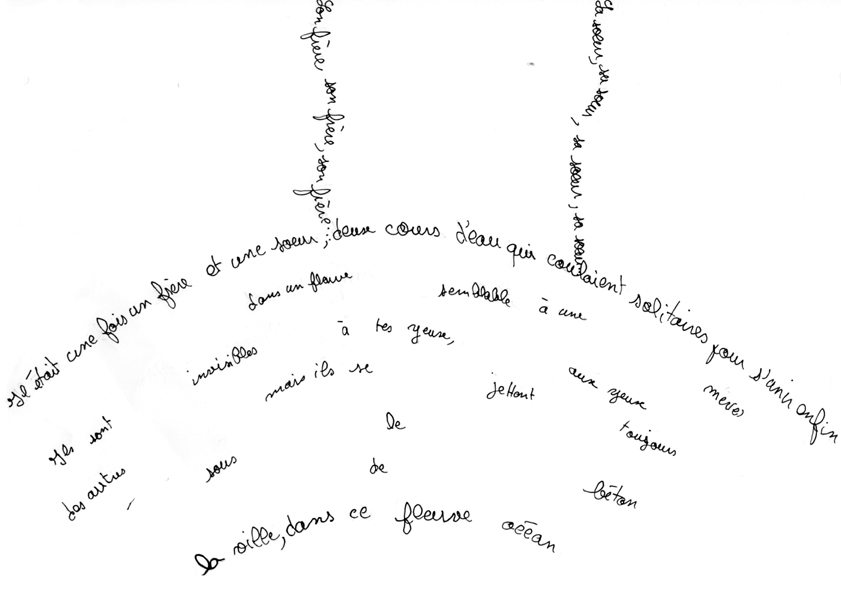 son frère son frère, son frère, son frère...
sa soeur, sa soeur, sa soeur, sa soeur
Il était une fois un frère et une soeur, : deux cours d'eau qui coulaient solitaires pour s'unir enfin
dans un fleuve semblable à une mer
Ils sont invisibles à tes yeux, aux yeux
des autres mais ils se jettent toujours
sous le béton
de
la ville, dans ce fleuve océan